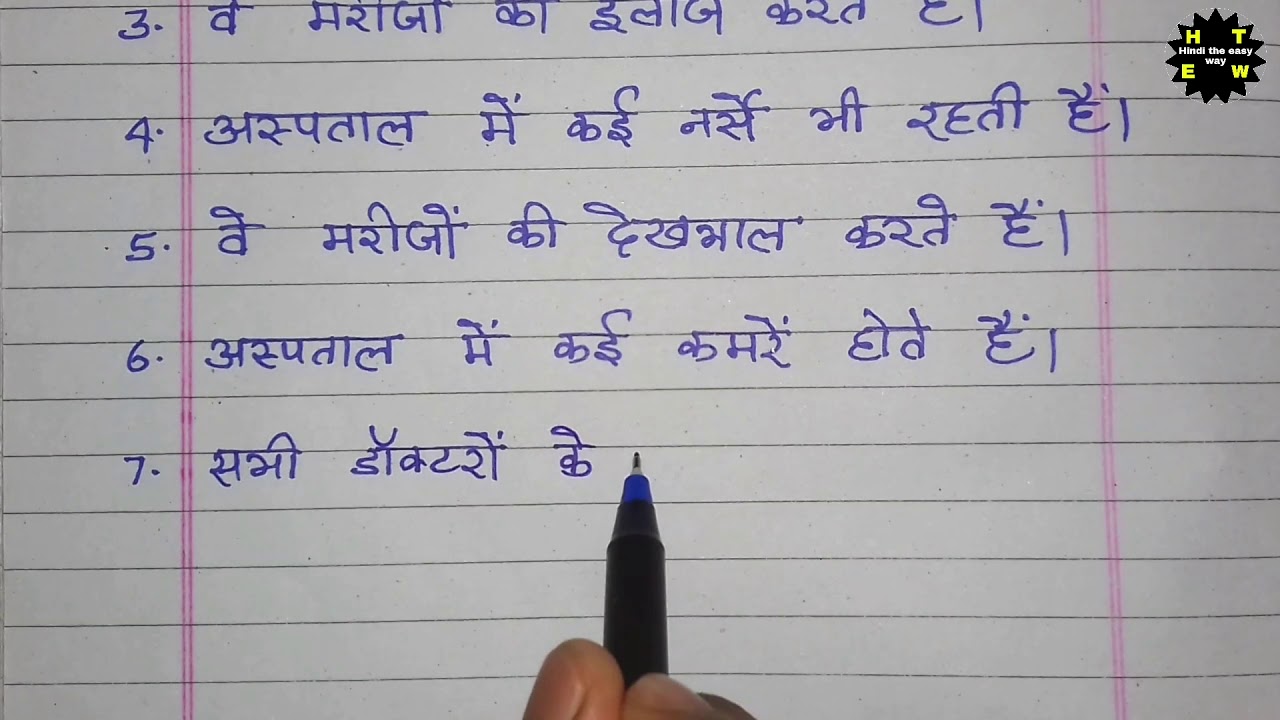 3. वे मरीजों का इलाज करते हैं।
H T
Hindi the easy
way
E W
4. अस्पताल में कई नर्से भी रहती हैं।
5. वे मरीजों की देखभाल करते हैं।
6. अस्पताल में कई कमरें होते हैं।
7. सभी डॉक्टरों के